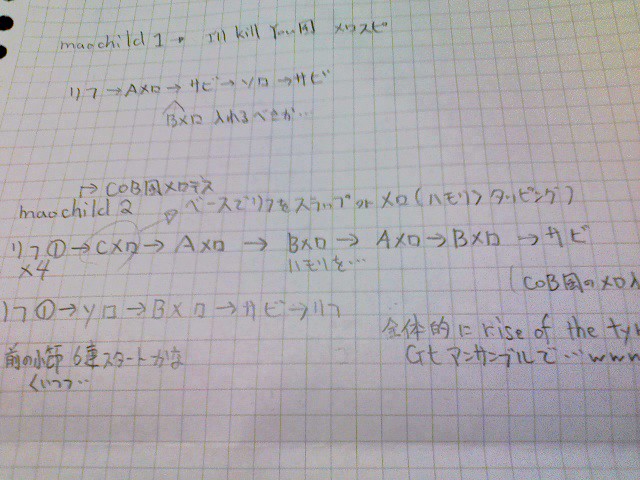 maochild 1 。 I'll kill You風 メロスピ
リフ→Aメロ→サビ→ソロ→サビ
Bメロ 入れるべきか…
→COB風メロデス
maochild 2 ベースでリフをスラップ or メロ(ハモリフタッピング)
リフ①→Cメロ→Aメロ→Bメロ→Aメロ→Bメロ→サビ
×4 ハモリを…
(COB風のメロ
リフ①→ソロ→Bメロ→サビ→リフ
全体的に rise of the ty
前の小節 6連スタートかな
Gt アンサンブルで…www